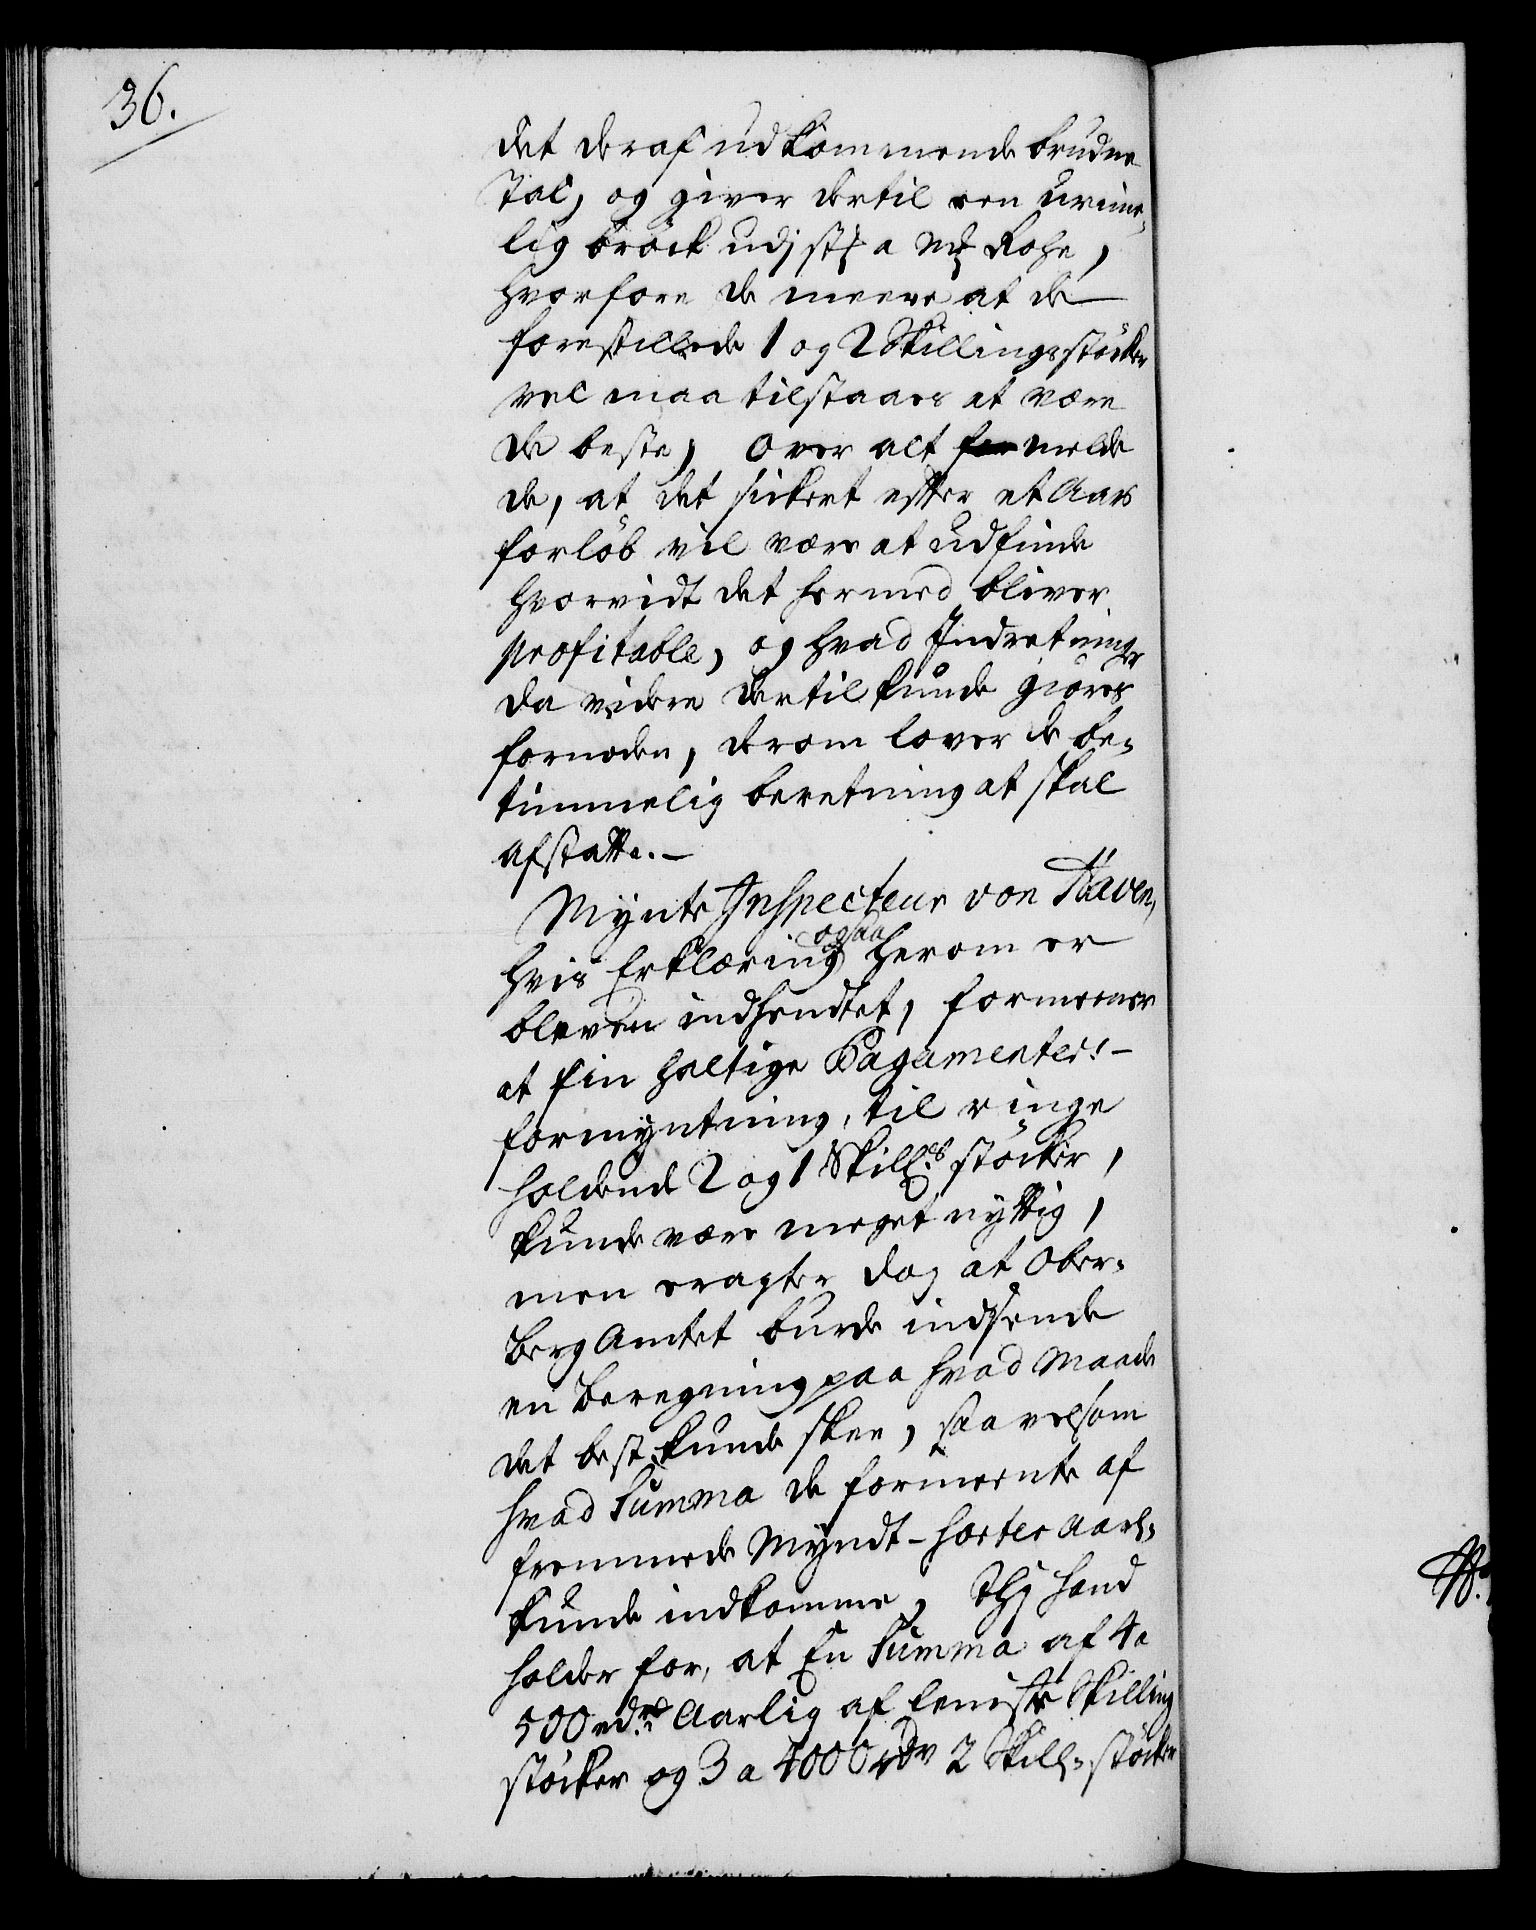 36.
det deraf udkommende brudne
Tal, og giver dertil een urime-
lig bröck udj st: a M: Rohe,
hvorfore de meene at de
forestillede 1 og 2 Skillingsstöcker
vel maa tilstaaes at være
de beste, Over alt melde
de, at det sickert efter et Aars
forlöb vil være at udfinde
hvorvidt det hermed bliver
profitable, og hvad Indretninger
da videre dertil kunde giöres
fornöden, derom lover de be-
timmelig beretning at skal
afstatte.-
Mynte Inspecteur von Haven,
hvis Erklæring ogsaa herom er
bleven indhendtet, formeener
at fin haltige Pagamenters-
formyntning, til ringe
holdende 2 og 1 Skill:s stöcker,
kunde være meget nyttig,
men eragter dog at Ober-
Berg Amtet burde indsende
en beregning paa hvad Maade
det best kunde skee, saavelsom
hvad Summa de formeente af
fremmede Myndt-Sorter Aarl:
kunde indkomme, Thj hand
holder for, at En Summa af 4 a
500 rdr Aarlig af Skilling
stöcker og 3 a 4000 rdr 2 Skill: stöcker